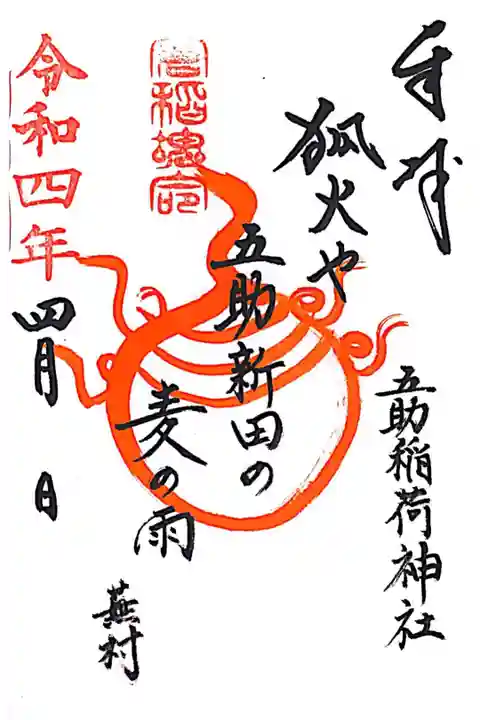 奉拝
五助稲荷神社
狐火や
五助新田の
麦の雨
蕪村
令和四年
四月 日